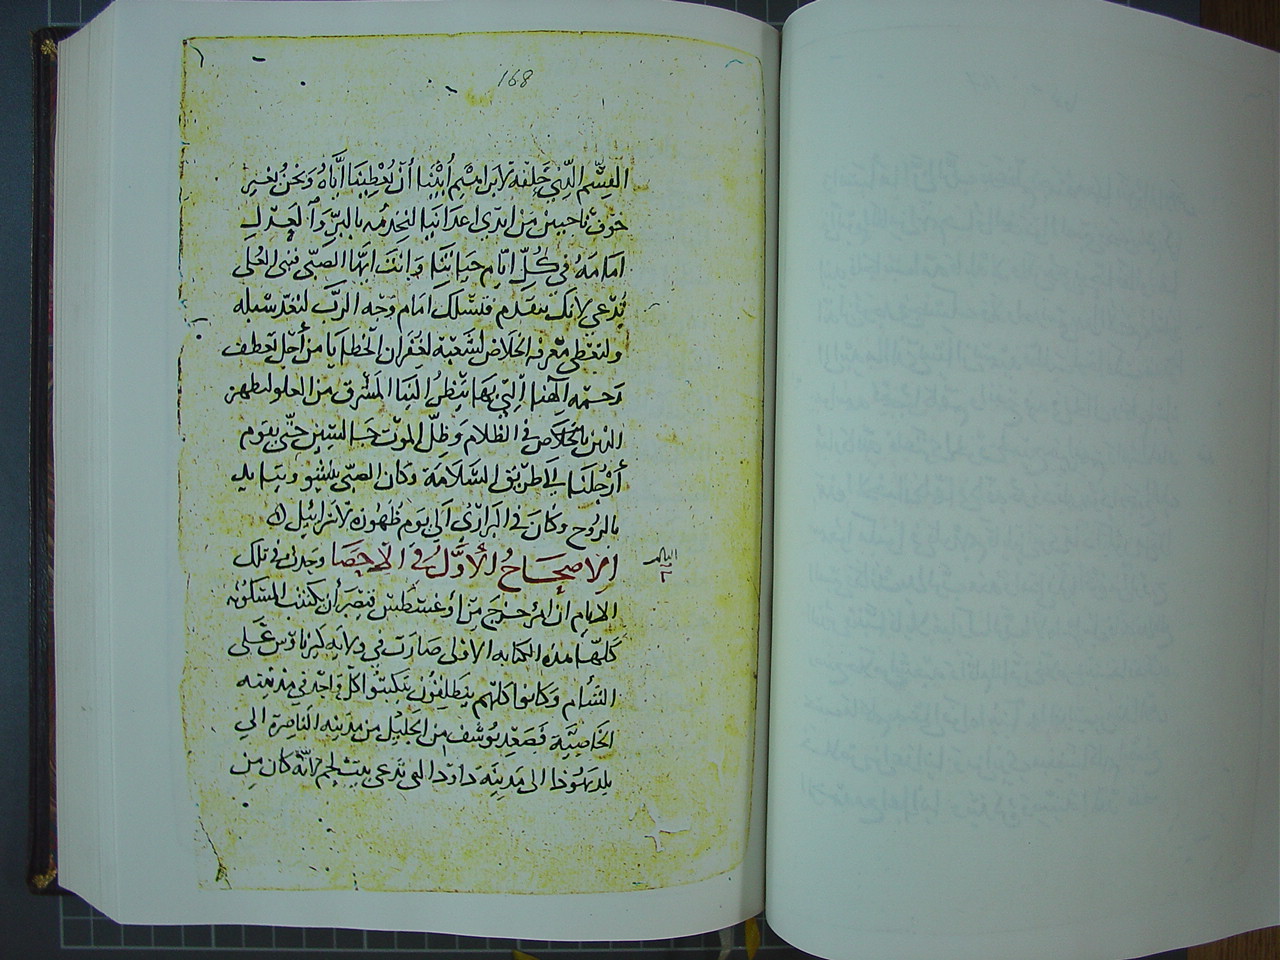 168
القسم الذي حلفه لابراهيم أبينا أن يعطينا اياه ونحن بغير
خوف ناجيين من ايدي اعدائنا لنخدمه بالبر والعدل
امامه في كل ايام حياتنا وانت ايها الصبي فنبي العلي
تدعى لانك تتقدم فتسلك امام وجه الرب لتعد سبله
ولتعطي معرفه الخلاص لشعبه لغفران الخطايا من أجل تعطف
رحمه الهنا التي بها ينظر الينا المشرق من العلو ليظهر
في الظلام وظل الموت جالسين حتى يقوم
أرجلنا الى طريق السلامة وكان الصبي ينشو ويتايد
بالروح وكان في البراري الى يوم ظهوره لاسرائيل
الاصحاح الأول في الاحصا وحدث في تلك
الايام ان امر خرج من أوغسطس قيصر أن تكتتب المسكونه
كلها هذه الكتابه الاولى صارت في ولايه كيرناوس على
الشام وكانوا كلهم ينطلقون ليكتبوا كل واحد في مدينته
الخاصية فصعد يوسف من الجليل من مدينه الناصرة الى
بلد يهوذا الى مدينة داود التي تدعى بيت لحم لأنه كان من